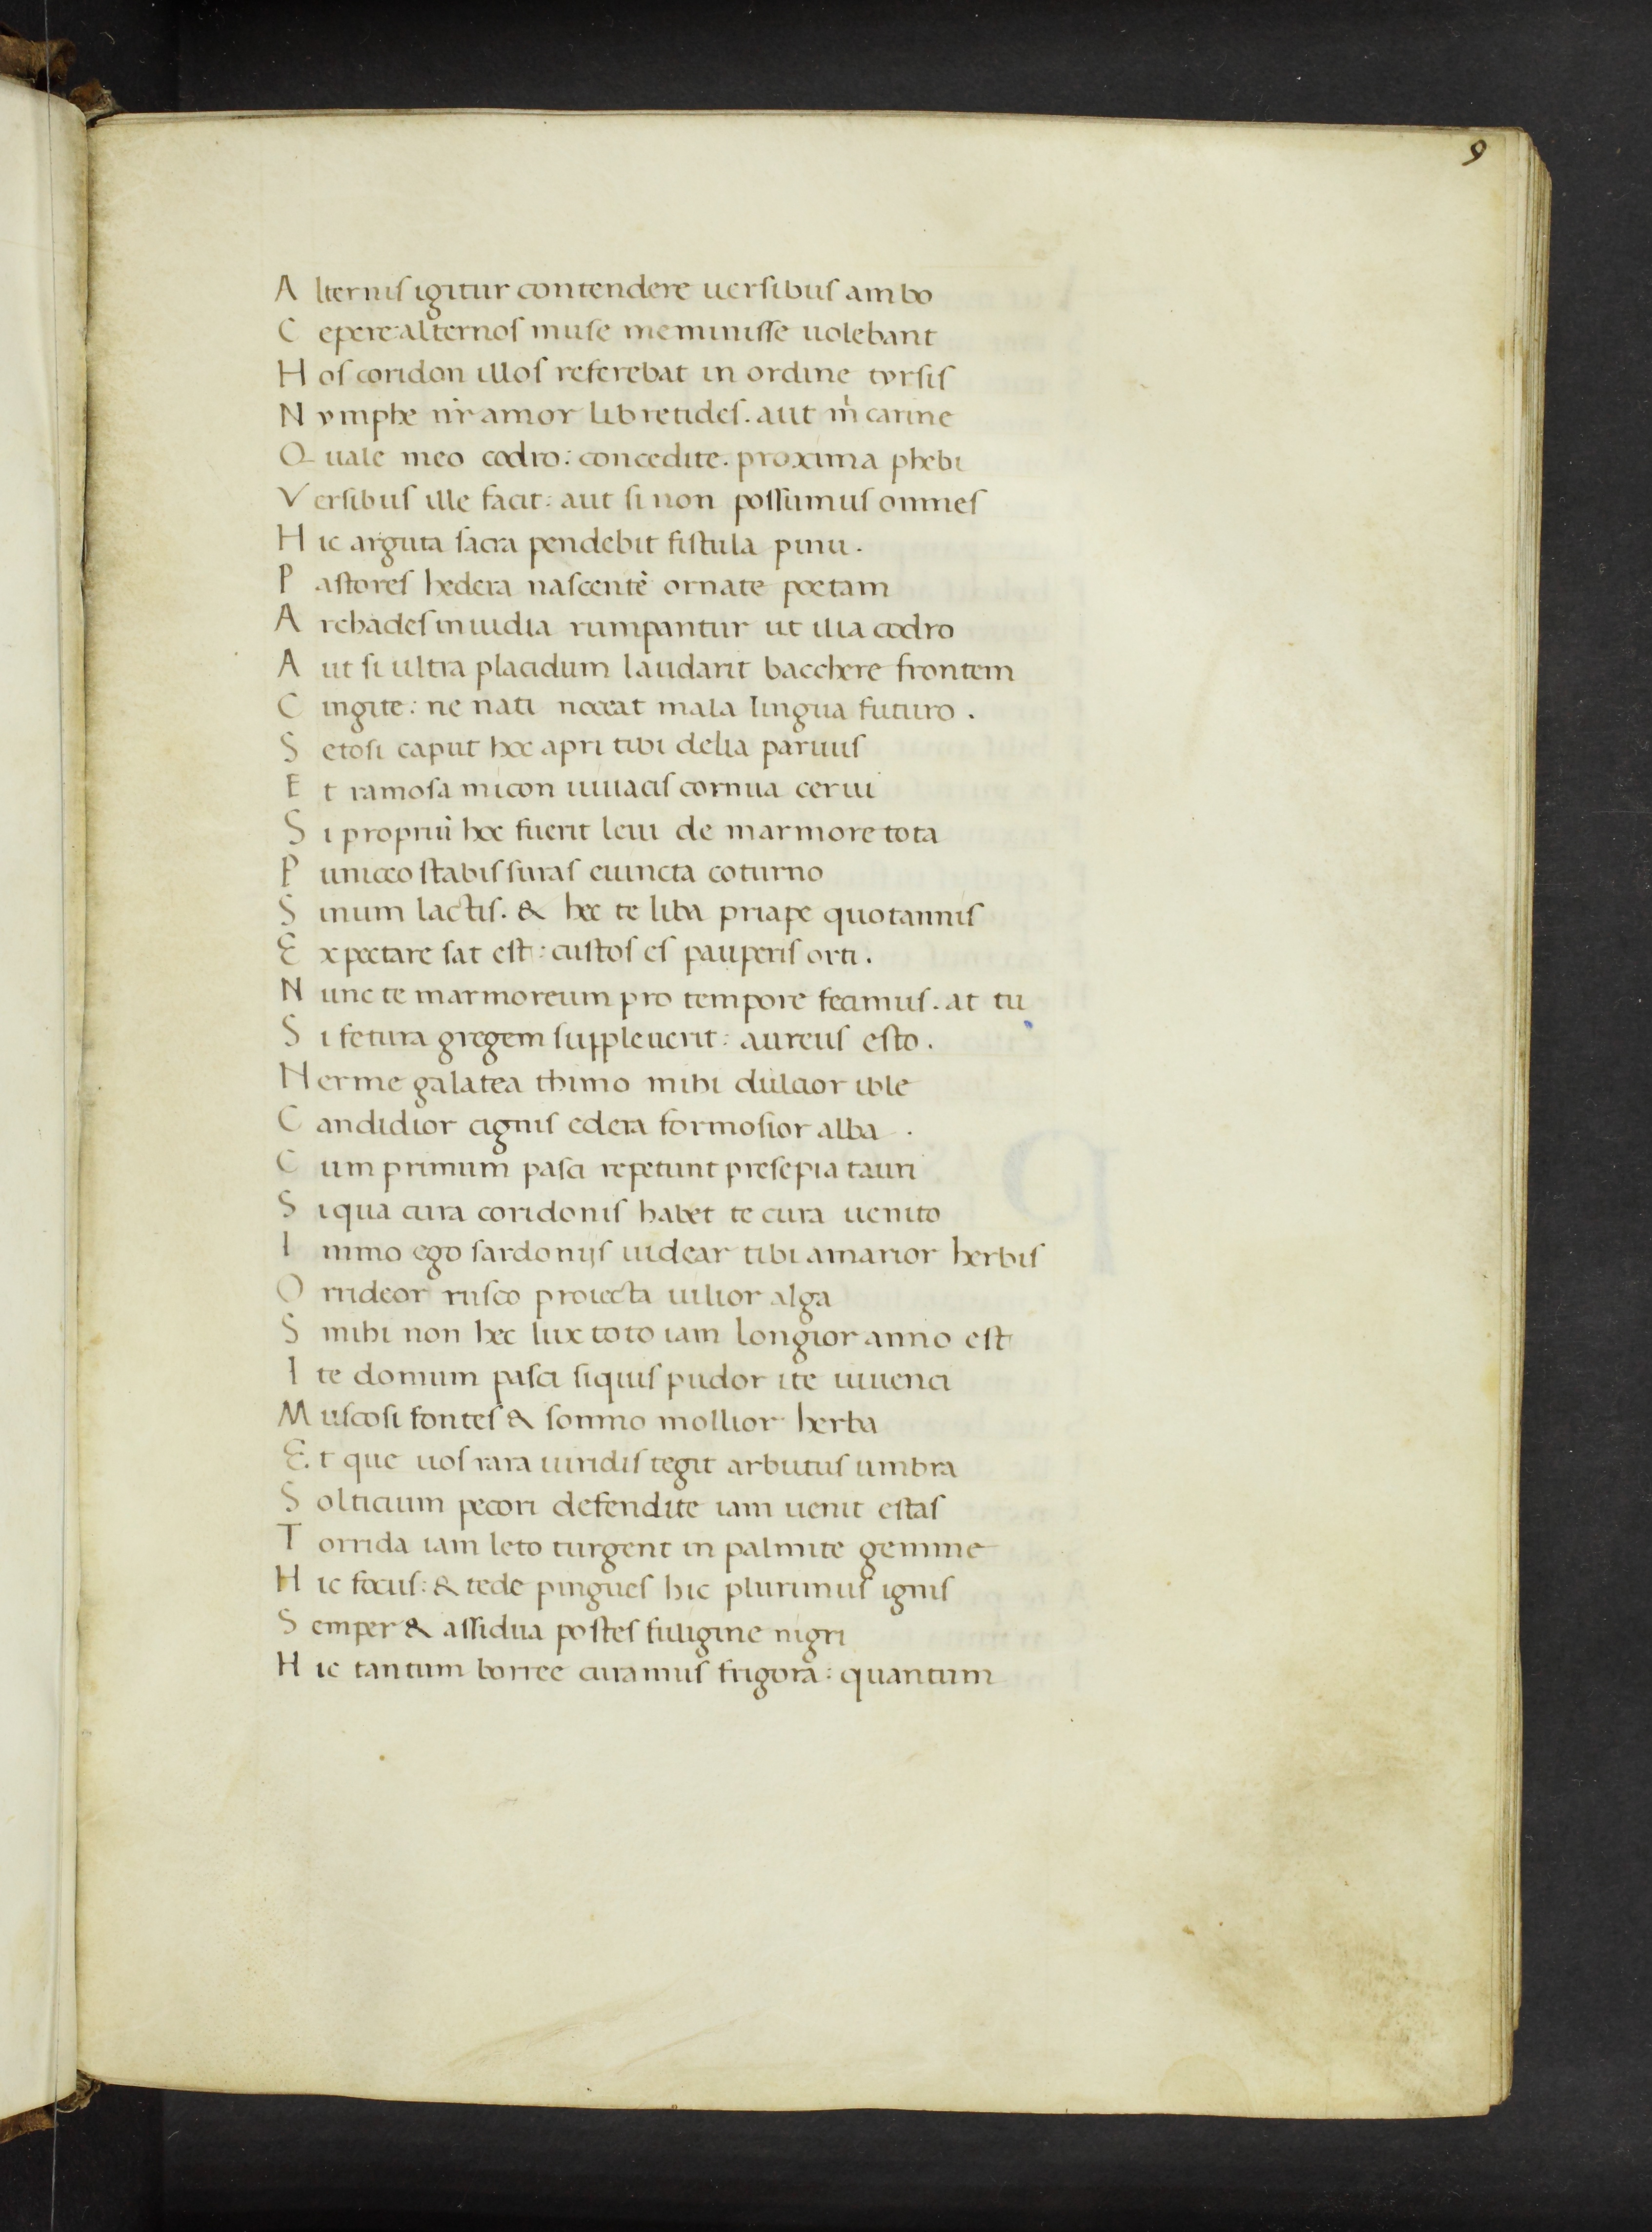 9
A lternis igitur contendere uersibus ambo
C epere alternos muse meminisse uolebant
H os coridon illos referebat in ordine tyrsis
N ymphe nr̄ amor libretides. aut m̍ carine
Q uale meo codro: concedite. proxima phebi
V ersibus ille facit: aut si non possumus omnes
H ic arguta sacra pendebit fistula pinu.
P astores hedera nascentē ornate poetam
A rchades inuidia rumpantur ut illia codro
A ut si ultra placidum laudarit bacchere frontem
C ingite: ne nati noceat mala lingua futuro.
S etosi caput hoc apri tibi delia paruus
E t ramosa micon uiuacis cornua cerui
S i propriū hoc fuerit leui de marmore tota
P uniceo stabis suras euincta coturno
S inum lactis. & hec te liba priape quotannis
E xpectare sat est: custos es pauperis orti.
N unc te marmoreum pro tempore fecimus. at tu
S i fetura gregem suppleuerit: aureus esto.
N erme galatea thimo mihi dulcior ible
C andidior cignis edera formosior alba.
C um primum pasci repetunt presepia tauri
S iqua cura coridonis habet te cura uenito
I mmo ego sardonijs uidear tibi amarior herbis
O rrideor rusco proiecta uilior alga
S mihi non hec lux toto iam longior anno est
I te domum pasci siquis pudor ite iuuenci
M uscosi fontes & somno mollior herba
E. t que uos rara uiridis tegit arbutus umbra
S olticium pecori defendite iam uenit estas
T orrida iam leto turgent in palmite gemme
H ic focus: & tede pingues hic plurimus ignis
S emper & assidua postes fuligine nigri
H ic tantum borree curamus frigora: quantum